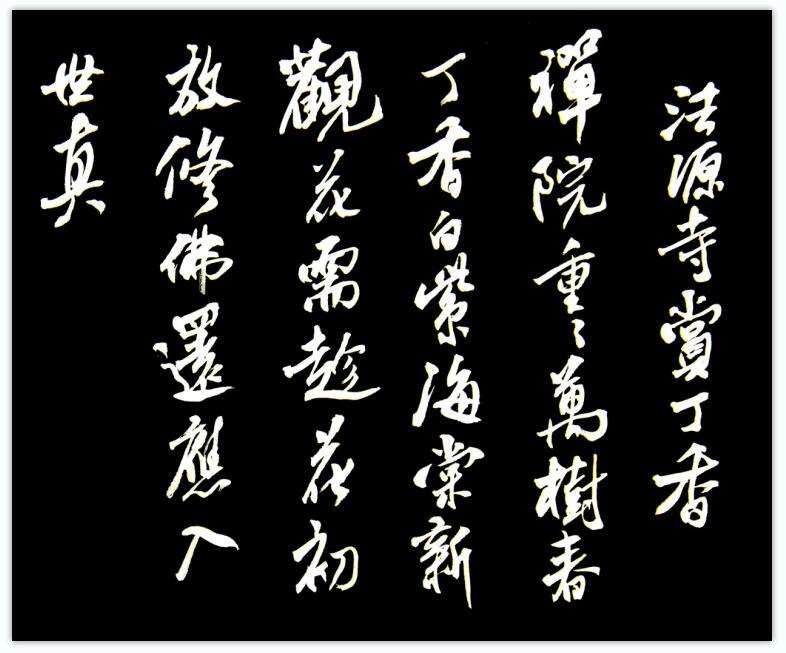 法源寺賞丁香
禪院重々萬樹春
丁香白紫海棠新
觀花需趁花初
放修佛還應入
世真